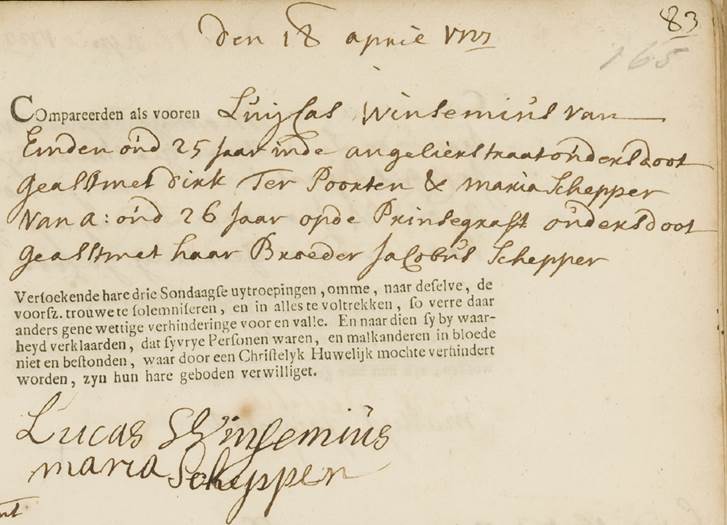 83
165
den 18 aprie 1727
COmpareerden als vooren Luijcas Winsemius van
Emden oud 25 Jaar inde angelierstraat ouders doot
geasst met dirk Ter Poorten & maria Schepper
van A: oud 26 Jaar opde Prinsegraft ouders doot
geasst met haar Broeder Jacobus Schepper
Versoekende hare drie Sondaagse uytroepingen, omme, naar deselve, de
voorsz. trouwe te solemniseren, en in alles te voltrekken, so verre daar
anders gene wettige verhinderinge voor en valle. En naar dien sy by waar-
heyd verklaarden, dat sy vrye Personen waren, en malkanderen in bloede
niet en bestonden, waar door een Christelyk Huwelijk mochte verhindert
worden, zyn hun hare geboden verwilliget.
Lucas Winsemius
maria Scheppen